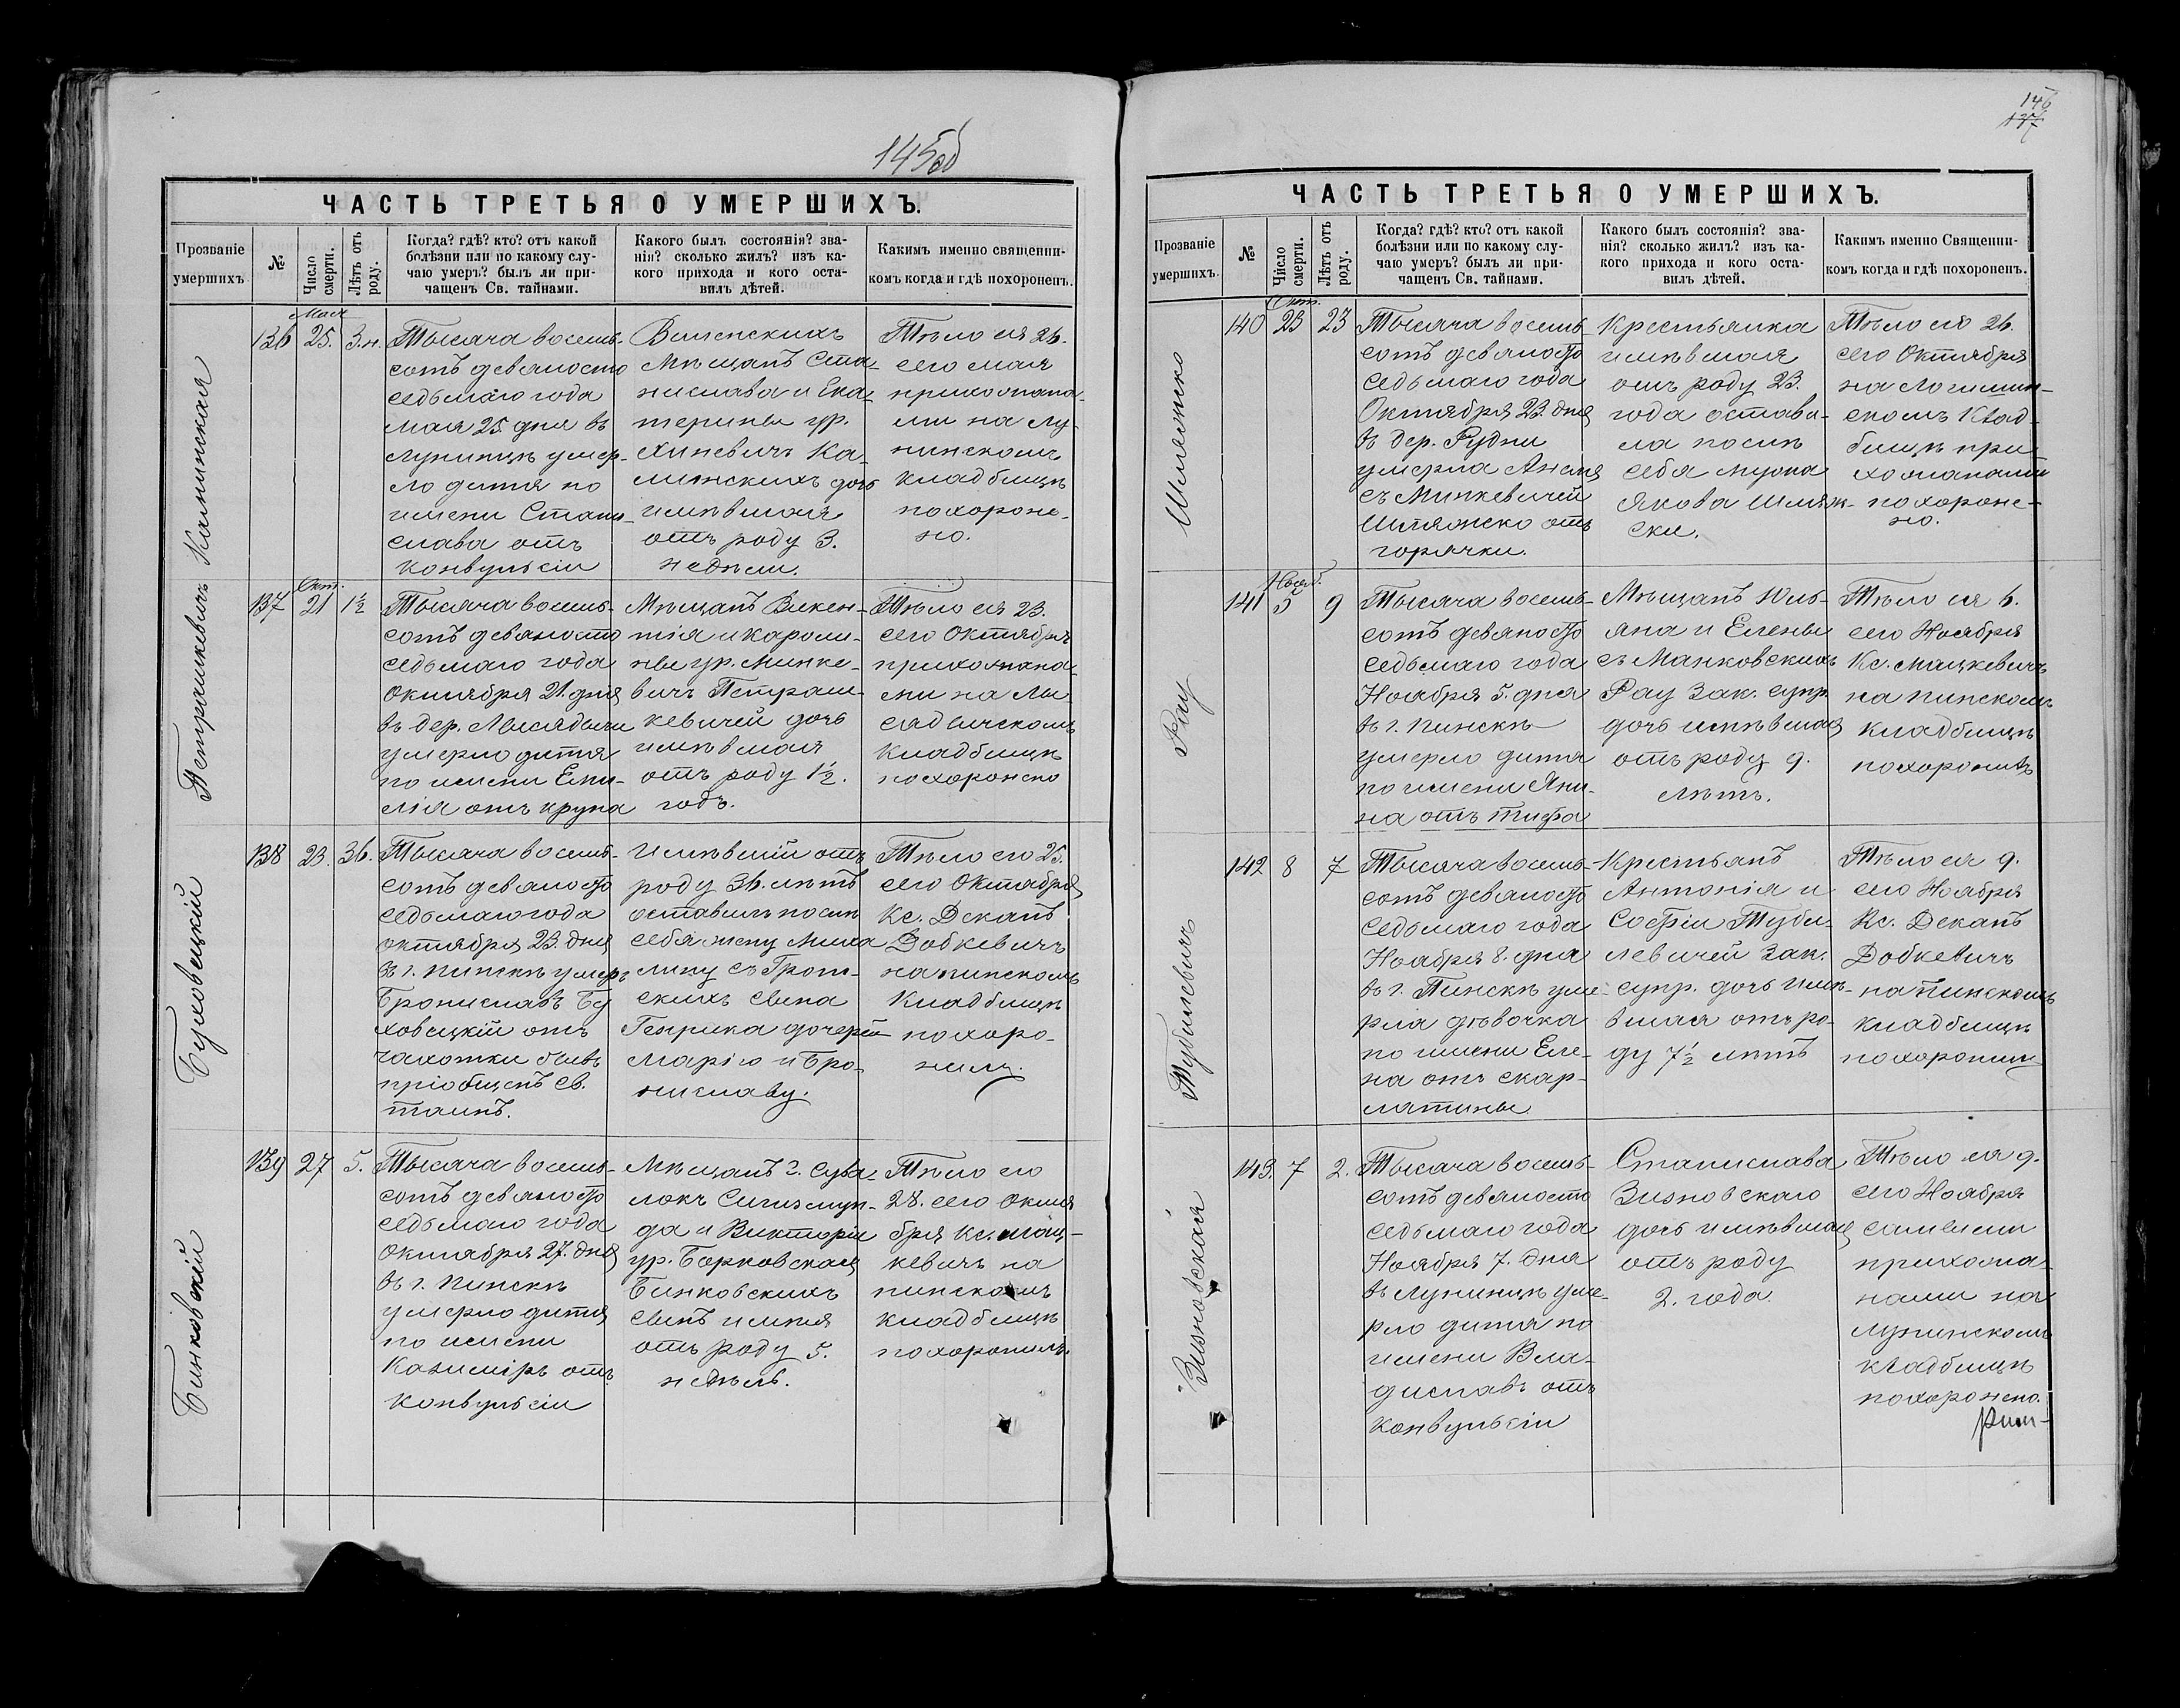 145об
ЧАСТЬ ТРЕТЬЯ О УМЕРШИХЪ.
Прозваніе умершихъ
№
Число смерти.
Лѣтъ отъ роду.
Когда? гдѣ? кто? отъ какой
болѣзни или по какому слу-
чаю умеръ? былъ ли при-
чащенъ Св. тайнами.
Какого былъ состоянія? зва-
нія? сколько жилъ? изъ ка-
кого прихода и кого оста-
вилъ дѣтей.
Какимъ именно священни-
комъ когда и гдѣ похороненъ.
Калининская
136
Мая
25.
3.н.
Тысяча восемь-
сотъ девяносто
седьмаго года
мая 25. дня въ
Лунинцѣ умер-
ло дитя по
имени Стани-
слава отъ
конвульсіи
Виленскихъ
Мѣщанъ Ста-
нислава и Ека-
терины ур.
Калинскихъ дочь
имѣвшая
отъ роду 3.
недѣли.
Тѣло ея 26.
сего мая
прихожана-
ми на Лу-
нинскомъ
кладбищѣ
похороне-
но.
Петрашкевичъ
137
Окт.
21
1½
Тысяча восемь-
сотъ девяносто
седьмаго года
Октября 21. дня
въ дер. Лысядычи
умерло дитя
по имени Еми-
лія отъ крупа
Мѣщанъ Викен-
тія и Кароли-
ны ур. Минке-
вичъ Петраш-
кевичей дочь
имѣвшая
отъ роду 1½.
годъ.
Тѣло ея 23.
сего Октября
прихожана-
ми на Лы-
сядычскомъ
кладбищѣ
похоронено
Буховецкій
138
23.
36.
Тысяча восемь-
сотъ девяносто
седьмаго года
октября 23. дня
въ г. Пинскѣ умеръ
Брониславъ Бу
ховецкій отъ
чахотки бывъ
пріобщенъ св.
таинъ.
Имѣвшій отъ
роду 36. лѣтъ
оставилъ послѣ
себя жену Миха
лину съ
сына
Генрика дочерей
Марію и Бро-
ниславу.
Тѣло его 25.
сего Октября
Кс. Деканъ
Добкевичъ
на пинскомъ
Кладбищѣ
похоро-
нилъ.
Бинковскій
139
27
5.
Тысяча восемь-
сотъ девяносто
седьмаго года
Октября 27. дня
въ г. Пинскѣ
умерло дитя
по имени
Казимiръ отъ
конвульсіи
Мѣщанъ г. Сува-
локъ Сигизмун-
да и Викторіи
ур. Борковская
Бинковскихъ
сынъ имѣя
отъ роду 5.
недѣль.
Тѣло его
28. сего Октя
бря Кс. Мац-
кевичъ на
пинскомъ
кладбищѣ
похоронилъ.
146
137
ЧАСТЬ ТРЕТЬЯ О УМЕРШИХЪ.
Прозваніе умершихъ.
№
Число смерти.
Лѣтъ отъ роду.
Когда? гдѣ? кто? отъ какой
болѣзни или по какому слу-
чаю умеръ? былъ ли при-
чащенъ Св. тайнами.
Какого былъ состоянія? зва-
нія? сколько жилъ? изъ ка-
кого прихода и кого оста-
вилъ дѣтей.
Какимъ именно Священни-
комъ когда и гдѣ похороненъ.
Шляжко
140
Окт.
23
23
Тысяча восемь-
сотъ девяносто
седьмаго года
Октября 23. дня
въ дер. Рудни
умерла
съ Минкевичей
Шляжско отъ
горячки.
Крестьянка
имѣвшая
отъ роду 23.
года остави-
ла послѣ
себя мужа
Якова Шляж-
ски.
Тѣло ея 26.
сего Октября
на Логишин-
скомъ клад-
бищѣ при-
хожанами
похороне-
но.
Рау
141
Нояб.
5
9
Тысяча восемь-
сотъ девяносто
седьмаго года
Ноября 5. дня
въ г. Пинскѣ
умерло дитя
по имени Яни-
на отъ тифа
Мѣщанъ Юль-
яна и Елены
съ Манковскихъ
Рау зак. супр.
дочь имѣвшая
отъ роду 9.
лѣтъ.
Тѣло ея 6.
сего Ноября
Кс. Мацкевичъ
на пинскомъ
кладбищѣ
похоронилъ
Тубилевичъ
142
8
7
Тысяча восемь-
сотъ девяносто
седьмаго года
Ноября 8. дня
въ г. Пинскѣ уме-
рла дѣвочка
по имени Еле-
на отъ скар-
латины
Крестьянъ
Антонія и
Софіи Туби-
левичей зак.
супр. дочь имѣ-
вшая отъ ро-
ду 7½ лѣтъ
Тѣло ея 9.
сего Ноября
Кс. Деканъ
Добкевичъ
на Пинскомъ
кладбищѣ
похоронилъ
Зизновская
143.
7
2.
Тысяча восемь-
сотъ девяносто
седьмаго года
Ноября 7. дня
въ Лунинцѣ уме-
рло дитя по
имени Вла-
диславъ отъ
конвульсіи
Станислава
Зизновскаго
дочь имѣвшая
отъ роду
2. года.
Тѣло ея 9.
сего Ноября
самыми
прихожа-
нами на
лунинскомъ
кладбищѣ
похоронено.